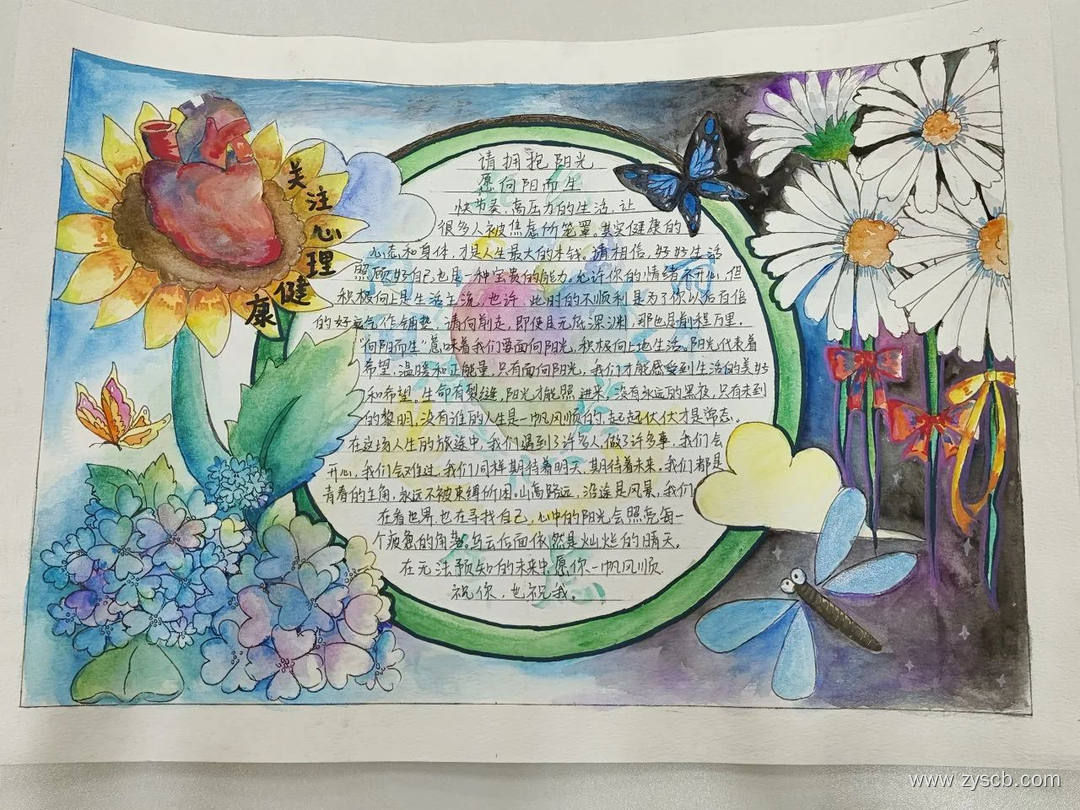 关注心理健康
请拥抱阳光
愿向阳而生
快节奏、高压力的生活,让
很多人被焦虑所笼罩,其实健康的
心态和身体,才是人生最大的本钱。请相信,好好生活
照顾好自己也是一种宝贵的能力,允许你的情绪不开心,但
积极向上是生活主流,也许,此时的不顺利是为了你以后百倍
的好运气作铺垫,请向前走,即使是无底深渊,那也是前程万里。
"向阳而生"意味着我们要面向阳光,积极向上地生活。阳光代表着
希望,温暖和正能量,只有面向阳光,我们才能感受到生活的美好
和希望。生命有裂缝,阳光才能照进来,没有永远的黑夜,只有未到
的黎明,没有谁的人生是一帆风顺的,起起伏伏才是常态。
在这场人生的旅途中,我们遇到了许多人,做了许多事,我们会
开心,我们会难过,我们同样期待着明天,期待着未来,我们都是
青春的主角,永远不被束缚所困。山高路远,沿途是风景,我们
在看世界,也在寻找自己,心中的阳光会照亮每一
个疲惫的角落,乌云后面依然是灿烂的晴天。
在无法预知的未来中,愿你一帆风顺
祝你,也祝我。
www.zyscb.com